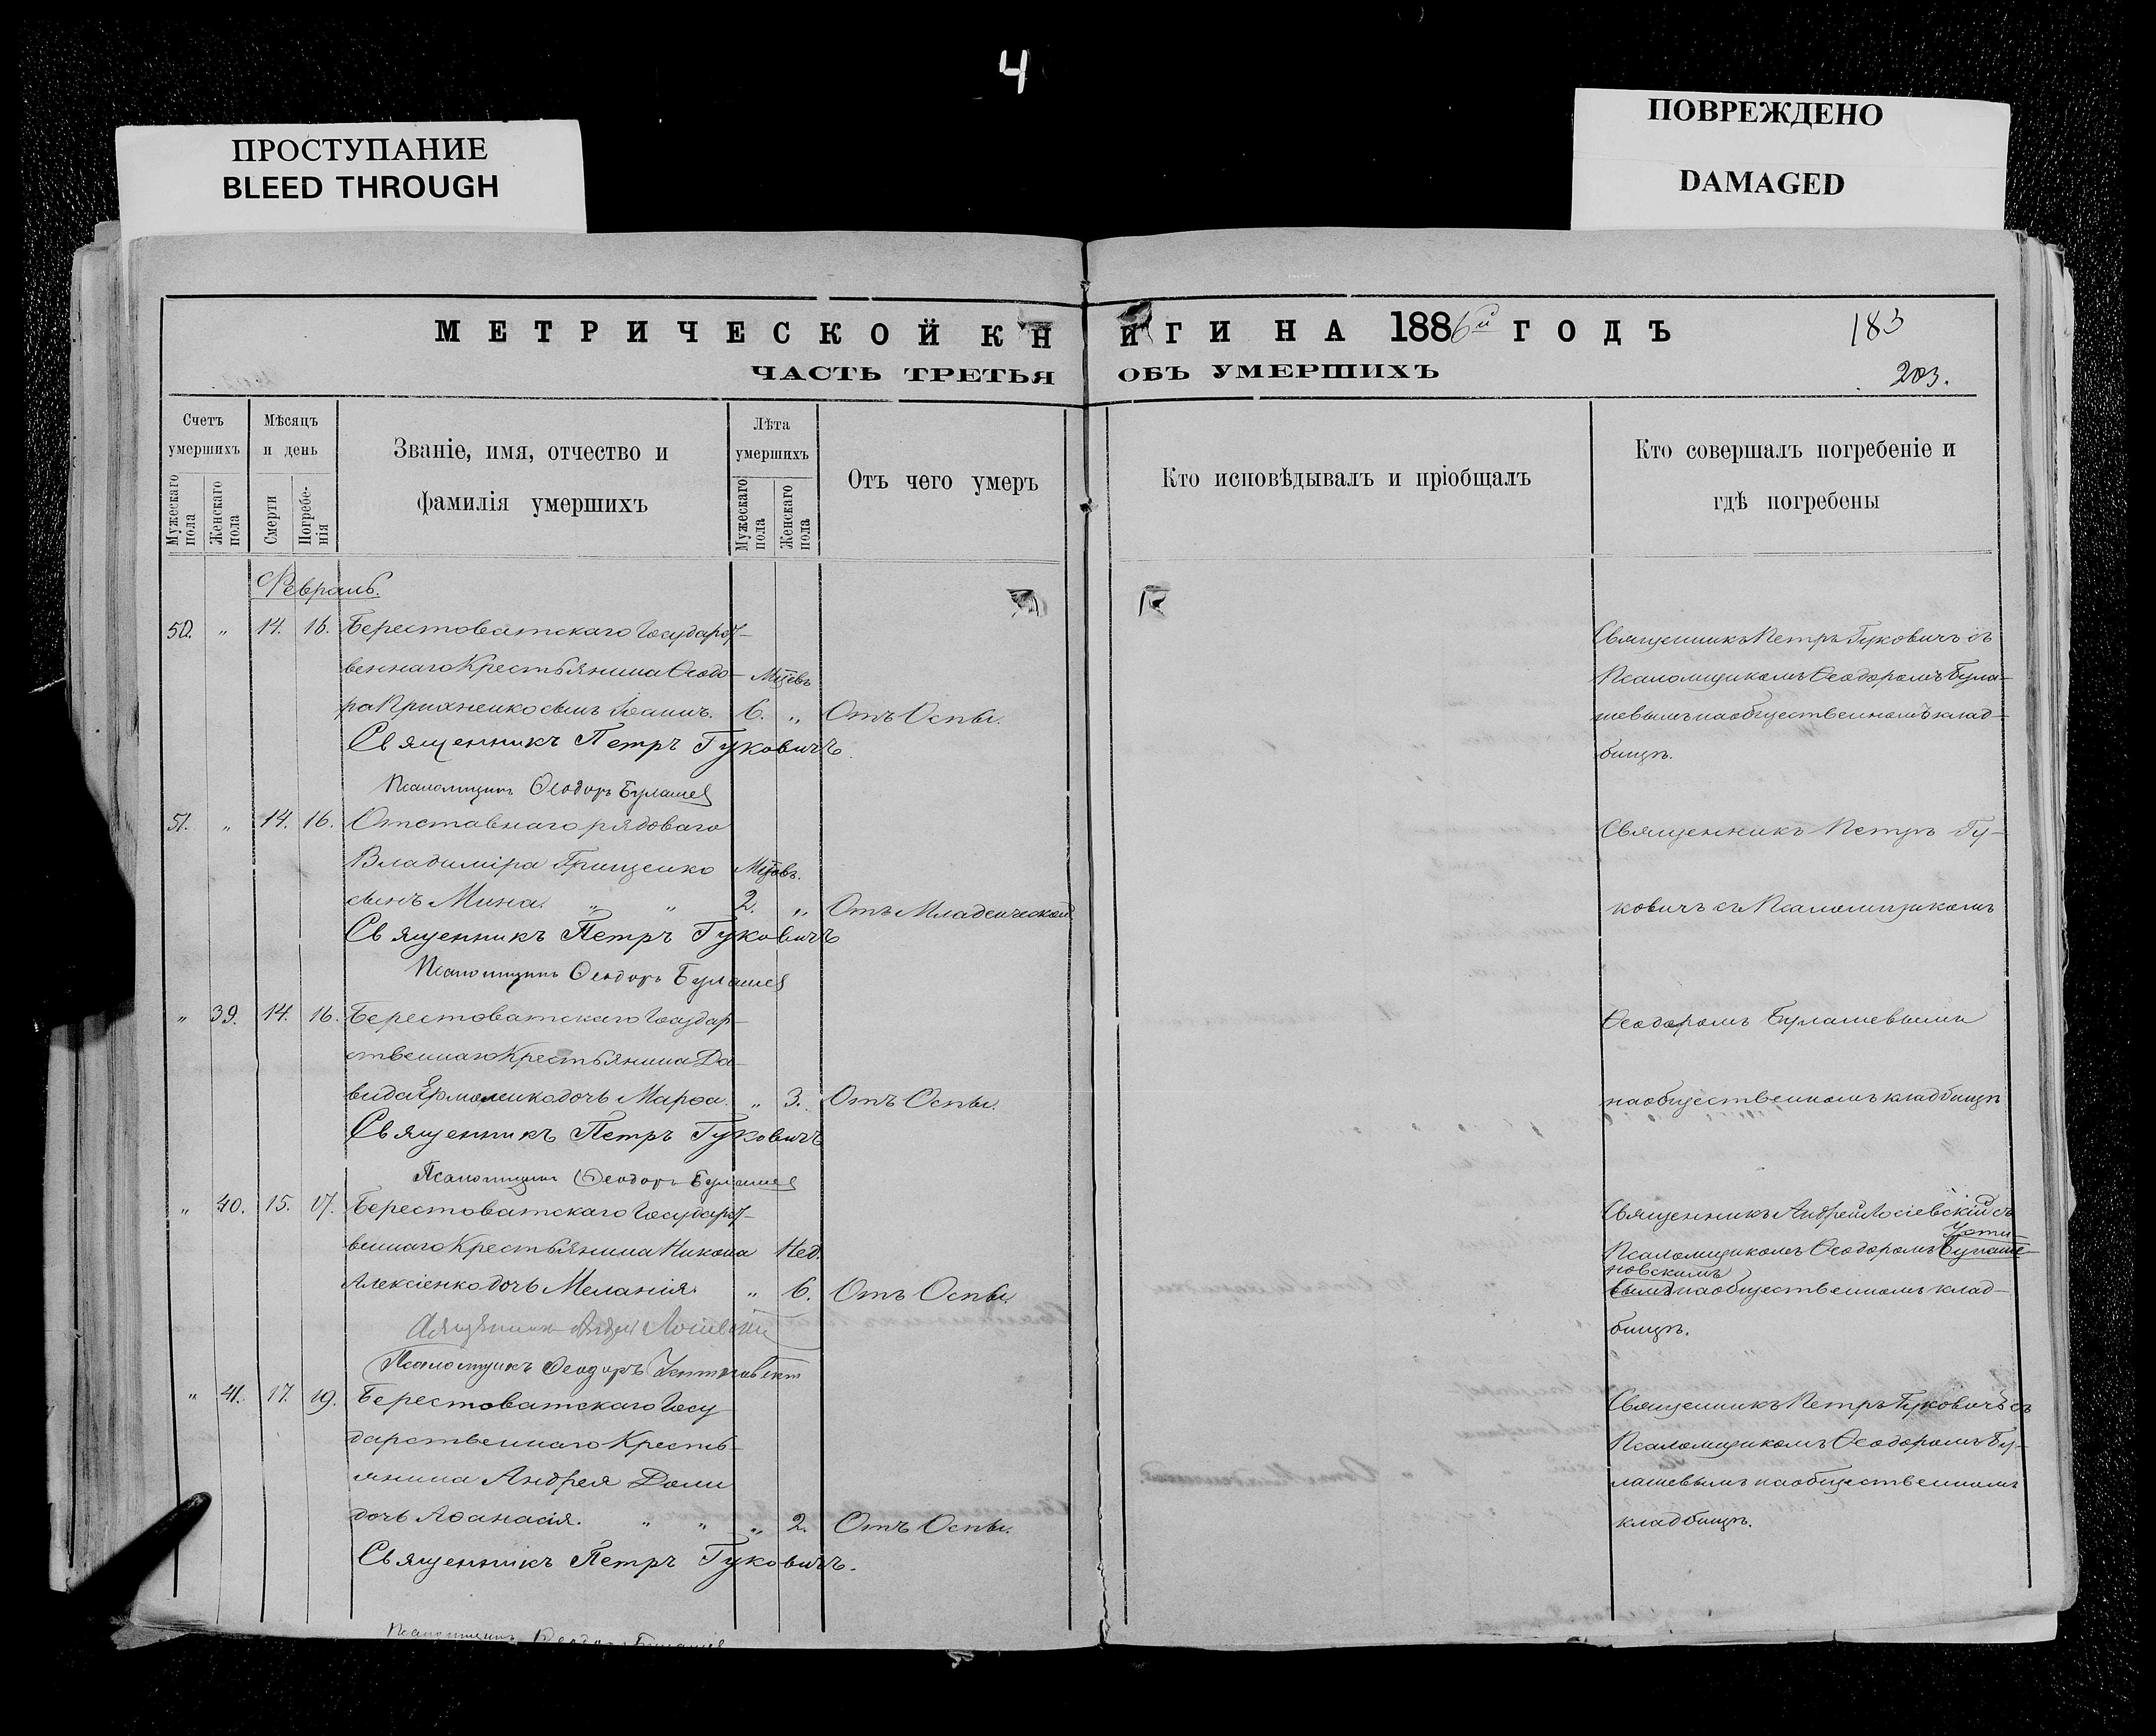 4
ПРОСТУПАНИЕ
BLEED THROUGH
ПОВРЕЖДЕНО
DAMAGED
МЕТРИЧЕСКОЙ КНИГИ НА 1886й ГОДЪ
183
ЧАСТЬ ТРЕТЬЯ ОБЪ УМЕРШИХЪ
203.
Счетъ умершихъ
Мужескаго пола
Женскаго пола
Мѣсяцъ и день
Смерти
Погребенія
Званіе, имя, отчество и
фамилія умершихъ
Лѣта умершихъ
Мужескаго пола
Женскаго пола
Отъ чего умеръ
Кто исповѣдывалъ и пріобщалъ
Кто совершалъ погребеніе и
гдѣ погребены
Февраль.
50. „ 14. 16. Берестоватскаго Государст-
веннаго Крестьянина Ѳеодо- Мцевъ
ра Прихненко сынъ Іоаннъ. 6. „ Отъ Оспы.
Священникъ Петръ Гуковичъ.
Псаломщикъ Ѳеодоръ Булашев
Священникъ Петръ Гуковичъ съ
Псаломщикомъ Ѳеодоромъ Була-
шевымъ на общественномъ клад-
бищѣ.
51. „ 14. 16. Отставнаго рядоваго
Владиміра Грищенко Мцевъ.
сынъ Мина. „ „ 2. „ Отъ Младенческой
Священникъ Петръ Гуковичъ
Псаломщикъ Ѳеодоръ Булашев
Священникъ Петръ Гу-
ковичъ съ Псаломщикомъ
„ 39. 14. 16. Берестоватскаго Государ-
ственнаго Крестьянина Да-
вида Ермоленко дочь Марѳа. „ 3. Отъ Оспы.
Священникъ Петръ Гуковичъ
Псаломщикъ Ѳеодоръ Булашев
Ѳеодоромъ Булашевымъ
на общественномъ кладбищѣ
„ 40. 15. 17. Берестоватскаго Государст-
веннаго Крестьянина Никона Нед.
Алексіенко дочь Меланія. „ 6. Отъ Оспы.
Священникъ Андрей Лосіевскій
Псаломщикъ Ѳеодоръ Устиновскій
Священникъ Андрей Лосіевскій съ
Усти-
Псаломщикомъ Ѳеодоромъ Булаше-
новскимъ
вымъ на общественномъ клад-
бищѣ.
„ 41. 17. 19. Берестоватскаго Госу-
дарственнаго Кресть-
янина Андрея Доли
дочь Аѳанасія. „ „ „ 2. Отъ Оспы.
Священникъ Петръ Гуковичъ.
Псаломщикъ Ѳеодоръ Булашев
Священникъ Петръ Гуковичъ съ
Псаломщикомъ Ѳеодоромъ Бу-
лашевымъ на общественномъ
кладбищѣ.